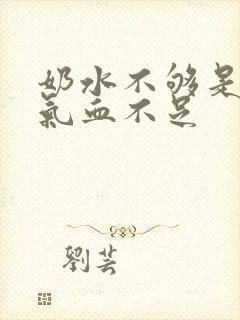 奶水不够是
氣血不足
劉芸